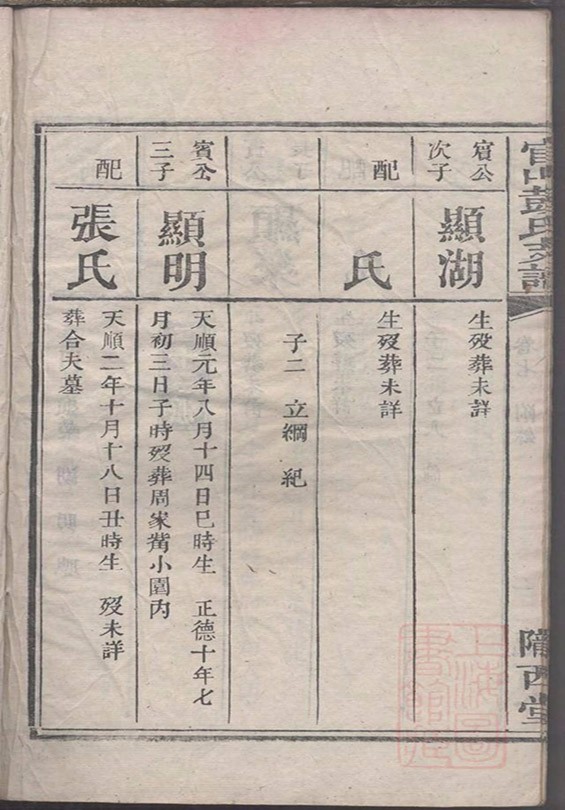 彭氏支譜
隴西堂
賔公次子
顯湖
生歿葬未詳
配
氏
生歿葬未詳
子二 立綱 紀
賔公三子
顯明
天順元年八月十四日巳時生 正德十年七
月初三日子時歿葬周家嵩小園內
配
張氏
天順二年十月十八日丑時生 歿未詳
葬合夫墓
上海圖書館藏